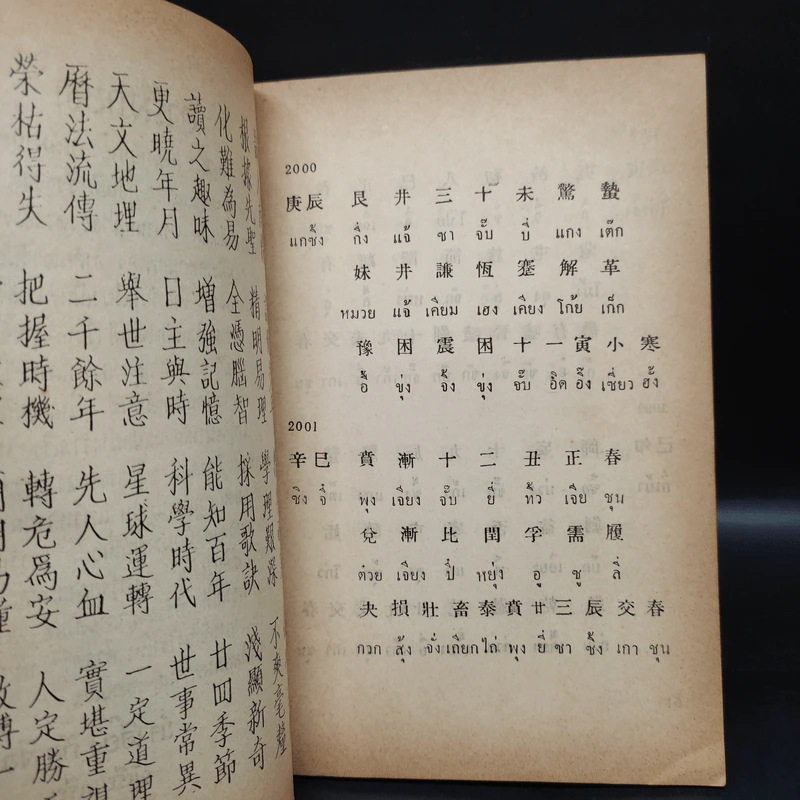 根據先聖 精明易理 學理艱深 不爽毫釐
化難為易 全憑腦智 採用歌訣 淺顯新奇
讀之趣味 增強記憶 能知百年 廿四季節
更曉年月 日主與時 科學時代 世事常異
天文地理 舉世注意 星球運轉 一定道理
曆法流傳 二千餘年 先人心血 實堪重視
榮枯得失 把握時機 轉危爲安 人定勝
2000
庚辰 艮 井 三 十 未 驚 蟄
แกซิ้ง กิ่ง แจ้ ซา จั๊บ บี่ แกง เต๊ก
妹 井 謙 恆 蹇 解 革
หมวย แจ้ เคียม เฮง เคียง โก้ย เก็ก
豫 困 震 困 十 一 寅 小 寒
อื๋อ ขุ่ง จิ้ง ขุ่ง จั๊บ อิด อิ๊ง เซี่ยว ฮั้ง
2001
辛巳 賁 漸 十 二 丑 正 春
ซิง จี๋ พุง เจียง จั๊บ ยี่ ทิ้ว เจีย ชุน
兌 漸 比 閏 孚 需 履
ต๋วย เจียง ปี๋ หยุ่ง อู ซู ลี่
夬 損 壯 畜 泰 賁 廿 三 辰 交 春
กวก สุ้ง จั่ง เถียก ไถ่ พุง ยี่ ซา ซิ้ง เกา ชุน